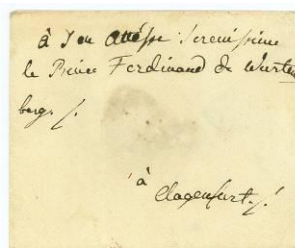 à Son Altésse Serenissime
le Prince Ferdinand de Wurtem
berg ./.
à
Clagenfurt ./.